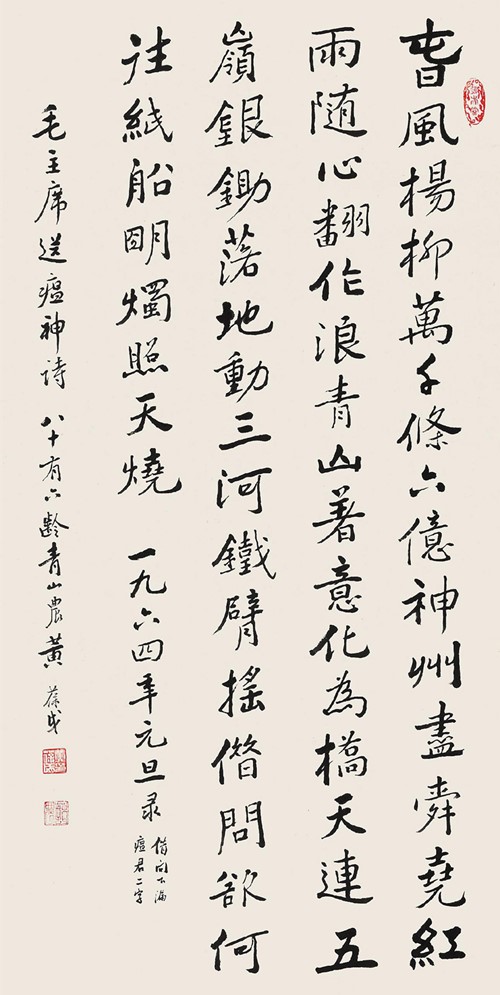 旾風楊柳萬千條六億神州盡舜堯紅
雨随心翻作浪青山著意化為橋天連五
嶺銀鋤落地動三河鐵臂搖借問欲何
往紙船朙燭照天燒 一九六四年元旦录
借問下漏
瘟君二字
毛主席送瘟神诗 八十有六齡青山農黃葆戉